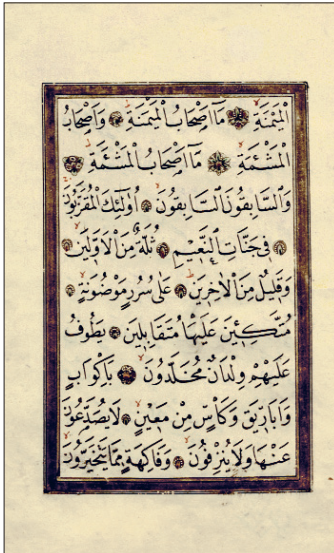 الْمَيْمَنَةِ مَا اَصْحَابُ الْمَيْمَنَةِ وَاَصْحَابُ
الْمَشْئَمَةِ مَا اَصْحَابُ الْمَشْئَمَةِ
وَالسَّابِقُونَ السَّابِقُونَ اُولٰئِكَ الْمُقَرَّبُونَ
فِى جَنَّاتِ النَّعِيمِ ثُلَّةٌ مِنَ الْاَوَّلِينَ
وَقَلِيلٌ مِنَ الْاٰخِرِينَ عَلٰى سُرُرٍ مَوْضُونَةٍ
مُتَّكِئِينَ عَلَيْهَا مُتَقَابِلِينَ يَطُوفُ
عَلَيْهِمْ وِلْدَانٌ مُخَلَّدُونَ بِاَكْوَابٍ
وَاَبَارِيقَ وَكَاْسٍ مِنْ مَعِينٍ لَا يُصَدَّعُونَ
عَنْهَا وَلَا يُنْزِفُونَ وَفَاكِهَةٍ مِمَّا يَتَخَيَّرُونَ